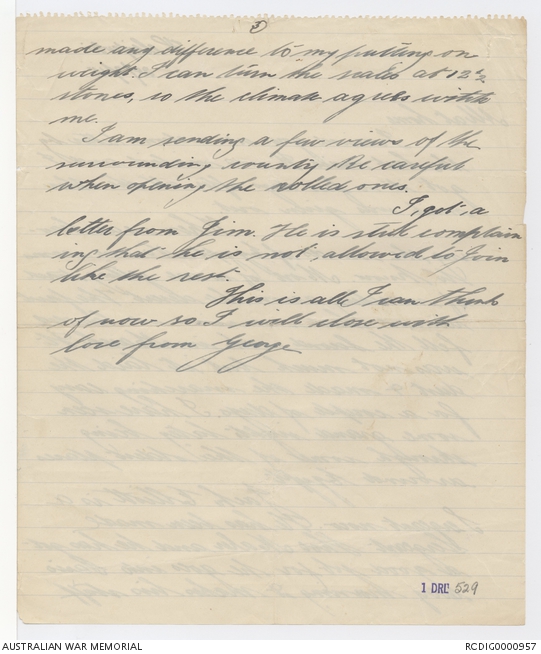 5
made any difference to my putting on
weight. I can turn the scales at 13 ½
stones, so the climate agrees with
me.
I am sending a few views of the
surrounding country. Be careful
when opening the rolled ones.
I, got, a
letter from Jim. He is still complain
ing that he is not, allowed to Join
like the rest.
This is all I can think
of now so I will close with
love from George
1 DRL 529
AUSTRALIAN WAR MEMORIAL
RCDIG0000957